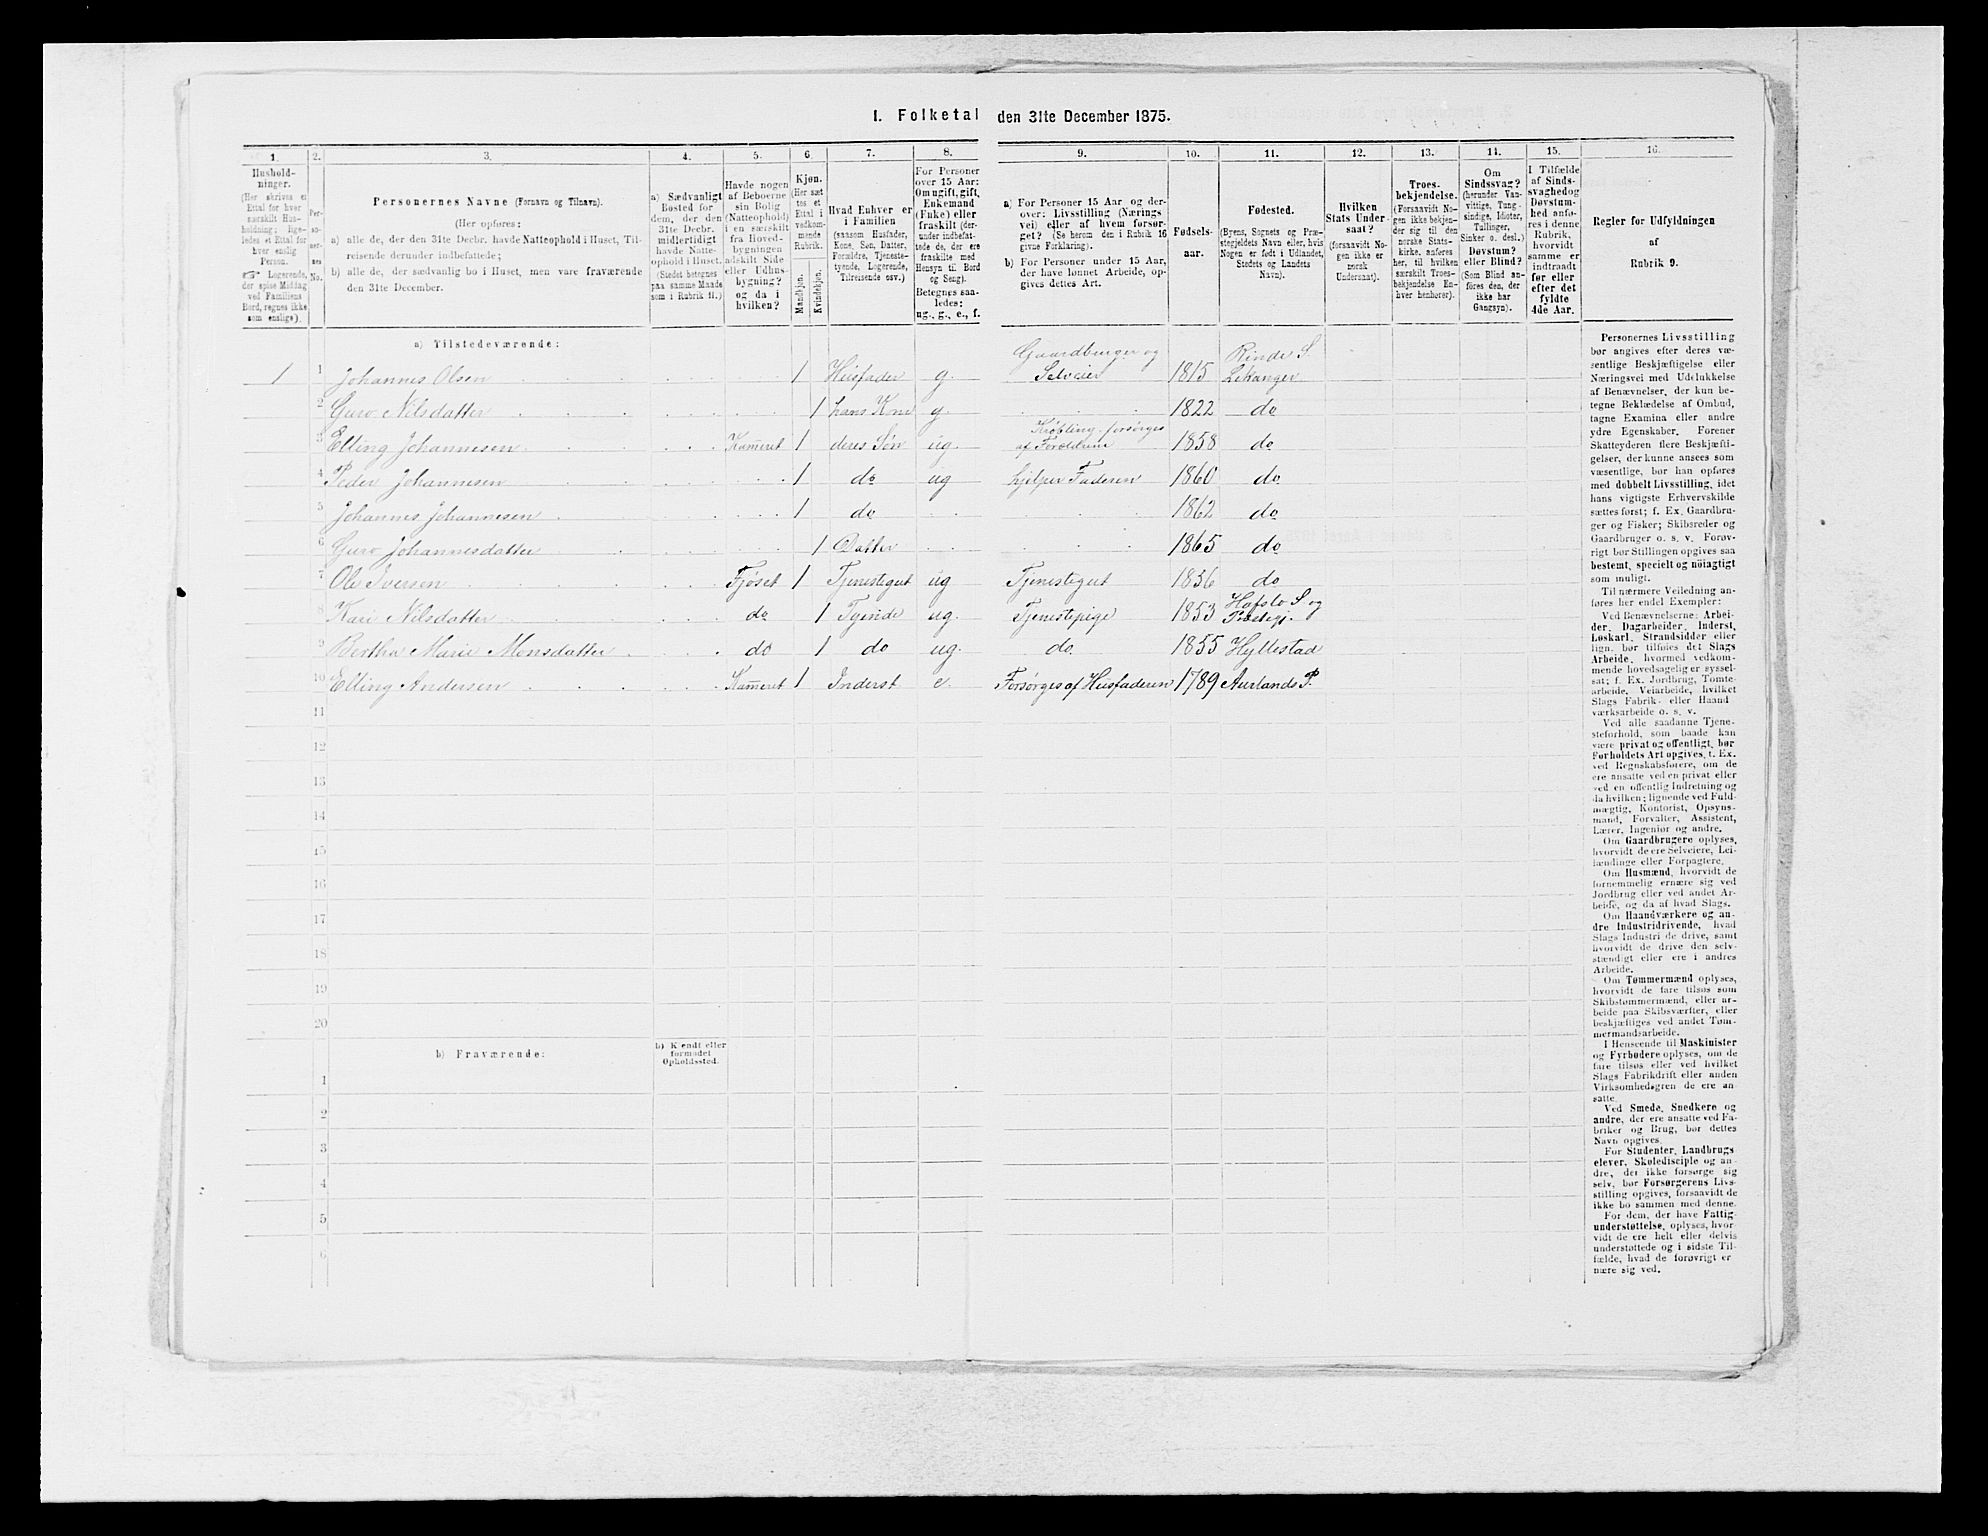 I. Folketal den 31te December 1875.
1. 2. 3. 4. 5. 6. 7. 8. 9. 10. 11. 12. 13. 14. 15. 16.
Hushold-
ninger.
(Her skrives et
Ettal for hver
særskilt Hus-
holdning; lige-
ledes et Ettal for
hver enslig
Person.
☞ Logerende,
der spise Middag
ved Familiens
Bord, regnes ikke
som enslige).
Per-
so-
ner-
nes
No.
Personernes Navne (Fornavn og Tilnavn).
(Her opføres:
a) alle de, der den 31te Decbr. havde Natteophold i Huset, Til-
reisende derunder indbefattede;
b) alle de, der sædvanlig bo i Huset, men vare fraværende
den 31te December.
a) Sædvanligt
Bosted for
dem, der den
31te Decbr.
midlertidigt
havde Natte-
ophold i Huset.
(Stedet betegnes
paa samme Maade
som i Rubrik 11.)
Havde nogen
af Beboerne
sin Bolig
(Natteophold)
i en særskilt
fra Hoved-
bygningen
adskilt Side
eller Udhus-
bygning?
og da i
hvilken?
Kjøn.
(Her sæt
tes et
Ettal i
vedkom-
mende
Rubrik.
Mandkjøn.
Kvindekjøn.
Hvad Enhver er
i Familien
(saasom Husfader,
Kone, Søn, Datter,
Forældre, Tjeneste-
tyende, Logerende,
Tilreisende osv.).
For Personer
over 15 Aar:
Om ugift, gift,
Enkemand
(Enke) eller
fraskilt (der-
under indbefat-
tede de, der ere
fraskilte med
Hensyn til Bord
og Seng).
Betegnes saa-
ledes:
ug., g., e., f.
a) For Personer 15 Aar og der-
over: Livsstilling (Nærings
vei) eller af hvem forsør-
get? (Se herom den i Rubrik 16
givne Forklaring).
b) For Personer under 15 Aar,
der have lønnet Arbeide, op-
gives dettes Art.
Fødsels-
aar.
Fødested.
(Byens, Sognets og Præ-
stegjeldets Navn eller, hvis
Nogen er født i Udlandet,
Stedets og Landets
Navn).
Hvilken
Stats Under-
saat?
(forsaavidt No-
gen ikke er
norsk
Undersaat).
Troes-
bekjendelse.
(Forsaavidt No-
gen ikke bekjen-
der sig til den
norske Stats-
kirke, anføres
her, til hvilken
særskilt Troes-
bekjendelse En-
hver henhører).
Om
Sindssvag?
(herunder Van-
vittige, Tung-
sindige, Idioter,
Tullinger,
Sinker o. desl.)
Døvstum?
eller Blind?
(Som Blind an-
føres den, der
ikke har
Gangsyn).
I Tilfælde
af Sinds-
svaghedog
Døvstum-
hed anfø-
res i denne
Rubrik,
hvorvidt
samme er
indtraadt
før eller
efter det
fyldte
4de Aar.
Regler for Udfyldningen
af
Rubrik 9.
a) Tilstedeværende:
1 1 Johannes Olsen 1 Husfader g. Gaardbruger og Selveier 1815 Rinde S. Lekanger
2 Guro Nilsdatter 1 hans Kone g. 1822 do
3 Elling Johannesen Kamret 1 deres Søn ug. Krøbling. forsørges af Forældrene 1858 do
4 Peder Johannesen 1 do ug hjelper Faderen 1860 do
5 Johannes Johannesen 1 do 1862 do
6 Guro Johannesdatter 1 Datter 1865 do
7 Ole Iversen Fjøset 1 Tjenestegut ug Tjenestegut 1856 do
8 Kari Nilsdatter do 1 Tyende ug. Tjenestepige 1853 Hafslo S. og Prestegj.
9 Bertha Marie Monsdatter do 1 do ug. do. 1855 Hyllestad
10 Elling Andersen Kamret 1 Inderst e. Forsørges af Husfaderen 1789 Aurlands P.
11
12
13
14
15
16
17
18
19
20
b) Fraværende:
b) Kjendt eller
formodet
Opholdssted.
1
2
3
4
5
6
Personernes Livsstilling
bør angives efter deres væ-
sentlige Beskjæftigelse eller
Næringsvei med Udelukkelse
af Benævnelser, der kun be-
tegne Beklædelse af Ombud,
tagne Examina eller andre
ydre Egenskaber. Forener
Skatteyderen flere Beskjæfti-
gelser, der kunne ansees som
væsentlige, bør han opføres
med dobbelt Livsstilling, idet
hans vigtigste Erhvervskilde
sættes først; f. Ex. Gaardbru-
ger og Fisker; Skibsreder og
Gaardbruger o. s. v. Forøv-
rigt bør Stillingen opgives saa
bestemt, specielt og nøiagtigt
som muligt.
Til nærmere Veiledning an-
føres her endel Exempler:
Ved Benævnelserne: Arbei-
der, Dagarbeider, Inderst,
Løskarl, Strandsidder eller
lign. bør tilføies det Slags
Arbeide, hvormed vedkom-
mende hovedsagelig er syssel-
sat; f. Ex. Jordbrug, Tomte-
arbeide, Veiarbeide, hvilket
Slags Fabrik- eller Haand
værksarbeide o. s. v.
Ved alle saadanne Tjene-
steforhold, som baade kan
være privat og offentligt, bør
Forholdets Art opgives, t. Ex.
ved Regnskabsførere, om de
ere ansatte ved en privat eller
ved en offentlig Indretning og
da hvilken; lignende ved Fuld-
mægtig, Kontorist, Opsyns-
mand, Forvalter, Assistent,
Lærer, Ingeniør og andre.
Om Gaardbrugere oplyses,
hvorvidt de ere Selveiere, Lei-
lændinge eller Forpagtere.
Om Husmænd, hvorvidt de
fornemmelig ernære sig ved
Jordbrug eller ved andet Ar-
beide, og da af hvad Slags.
Om Haandværkere og an-
dre Industridrivende, hvad
Slags Industri de drive, samt
hvorvidt de drive den selv-
stændigt eller ere i andres
Arbeide.
Om Tømmermænd oplyses,
hvorvidt de fare tilsøs som
Skibstømmermænd, eller ar-
beide paa Skibsværfter, eller
beskjæftiges ved andet Tøm-
mermandsarbeide.
I Henseende til Maskinister
og Fyrbødere oplyses, om de
fare tilsøs eller ved hvilket
Slags Fabrikdrift eller anden
Virksomhedsgren de ere an-
satte.
Ved Smede, Snedkere og
andre, der ere ansatte ved Fa-
briker og Brug, bør dettes
Navn opgives.
For Studenter, Landbrugs
elever, Skoledisciple og an-
dre, der ikke forsørge sig
selv, bør Forsørgerens Livs-
stilling opgives, forsaavidt de
ikke bo sammen med denne.
For dem, der have Fattig-
understøttelse, oplyses, hvor-
vidt de ere helt eller delvis
understøttede og i sidste Til-
fælde, hvad de forøvrigt er
nære sig ved.